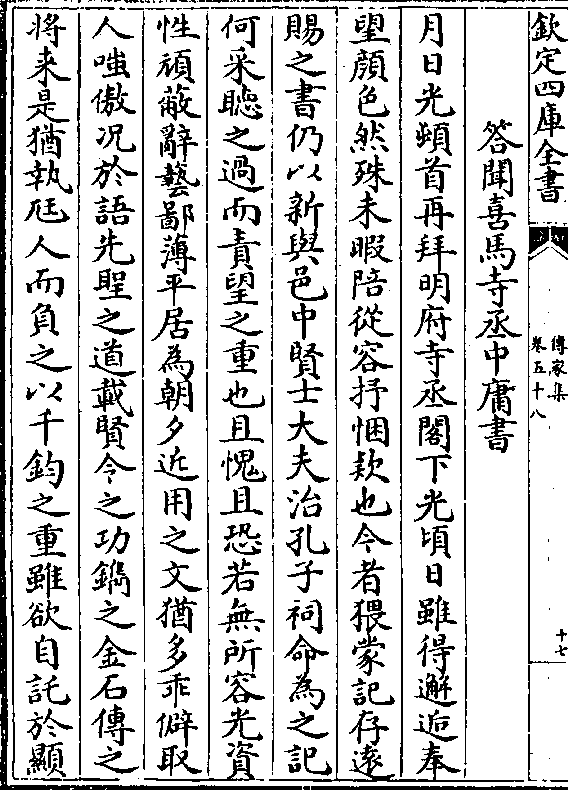 欽定四庫全書
傳家集
卷五十八
十七
答聞喜馬寺丞中庸書
月日光頓首再拜明府寺丞閣下光頃日雖得邂逅奉
望顔色然殊未暇陪從容抒悃欵也今者猥蒙記存逺
賜之書仍以新輿邑中賢士大夫治孔子祠命為之記
何采聽之過而責望之重也且愧且恐若無所容光資
性頑蔽辭藝鄙薄平居為朝夕近用之文猶多乖僻取
人嗤傲况於語先聖之道載賢令之功鐫之金石傳之
将来是猶執尫人而負之以千鈞之重雖欲自託於顯